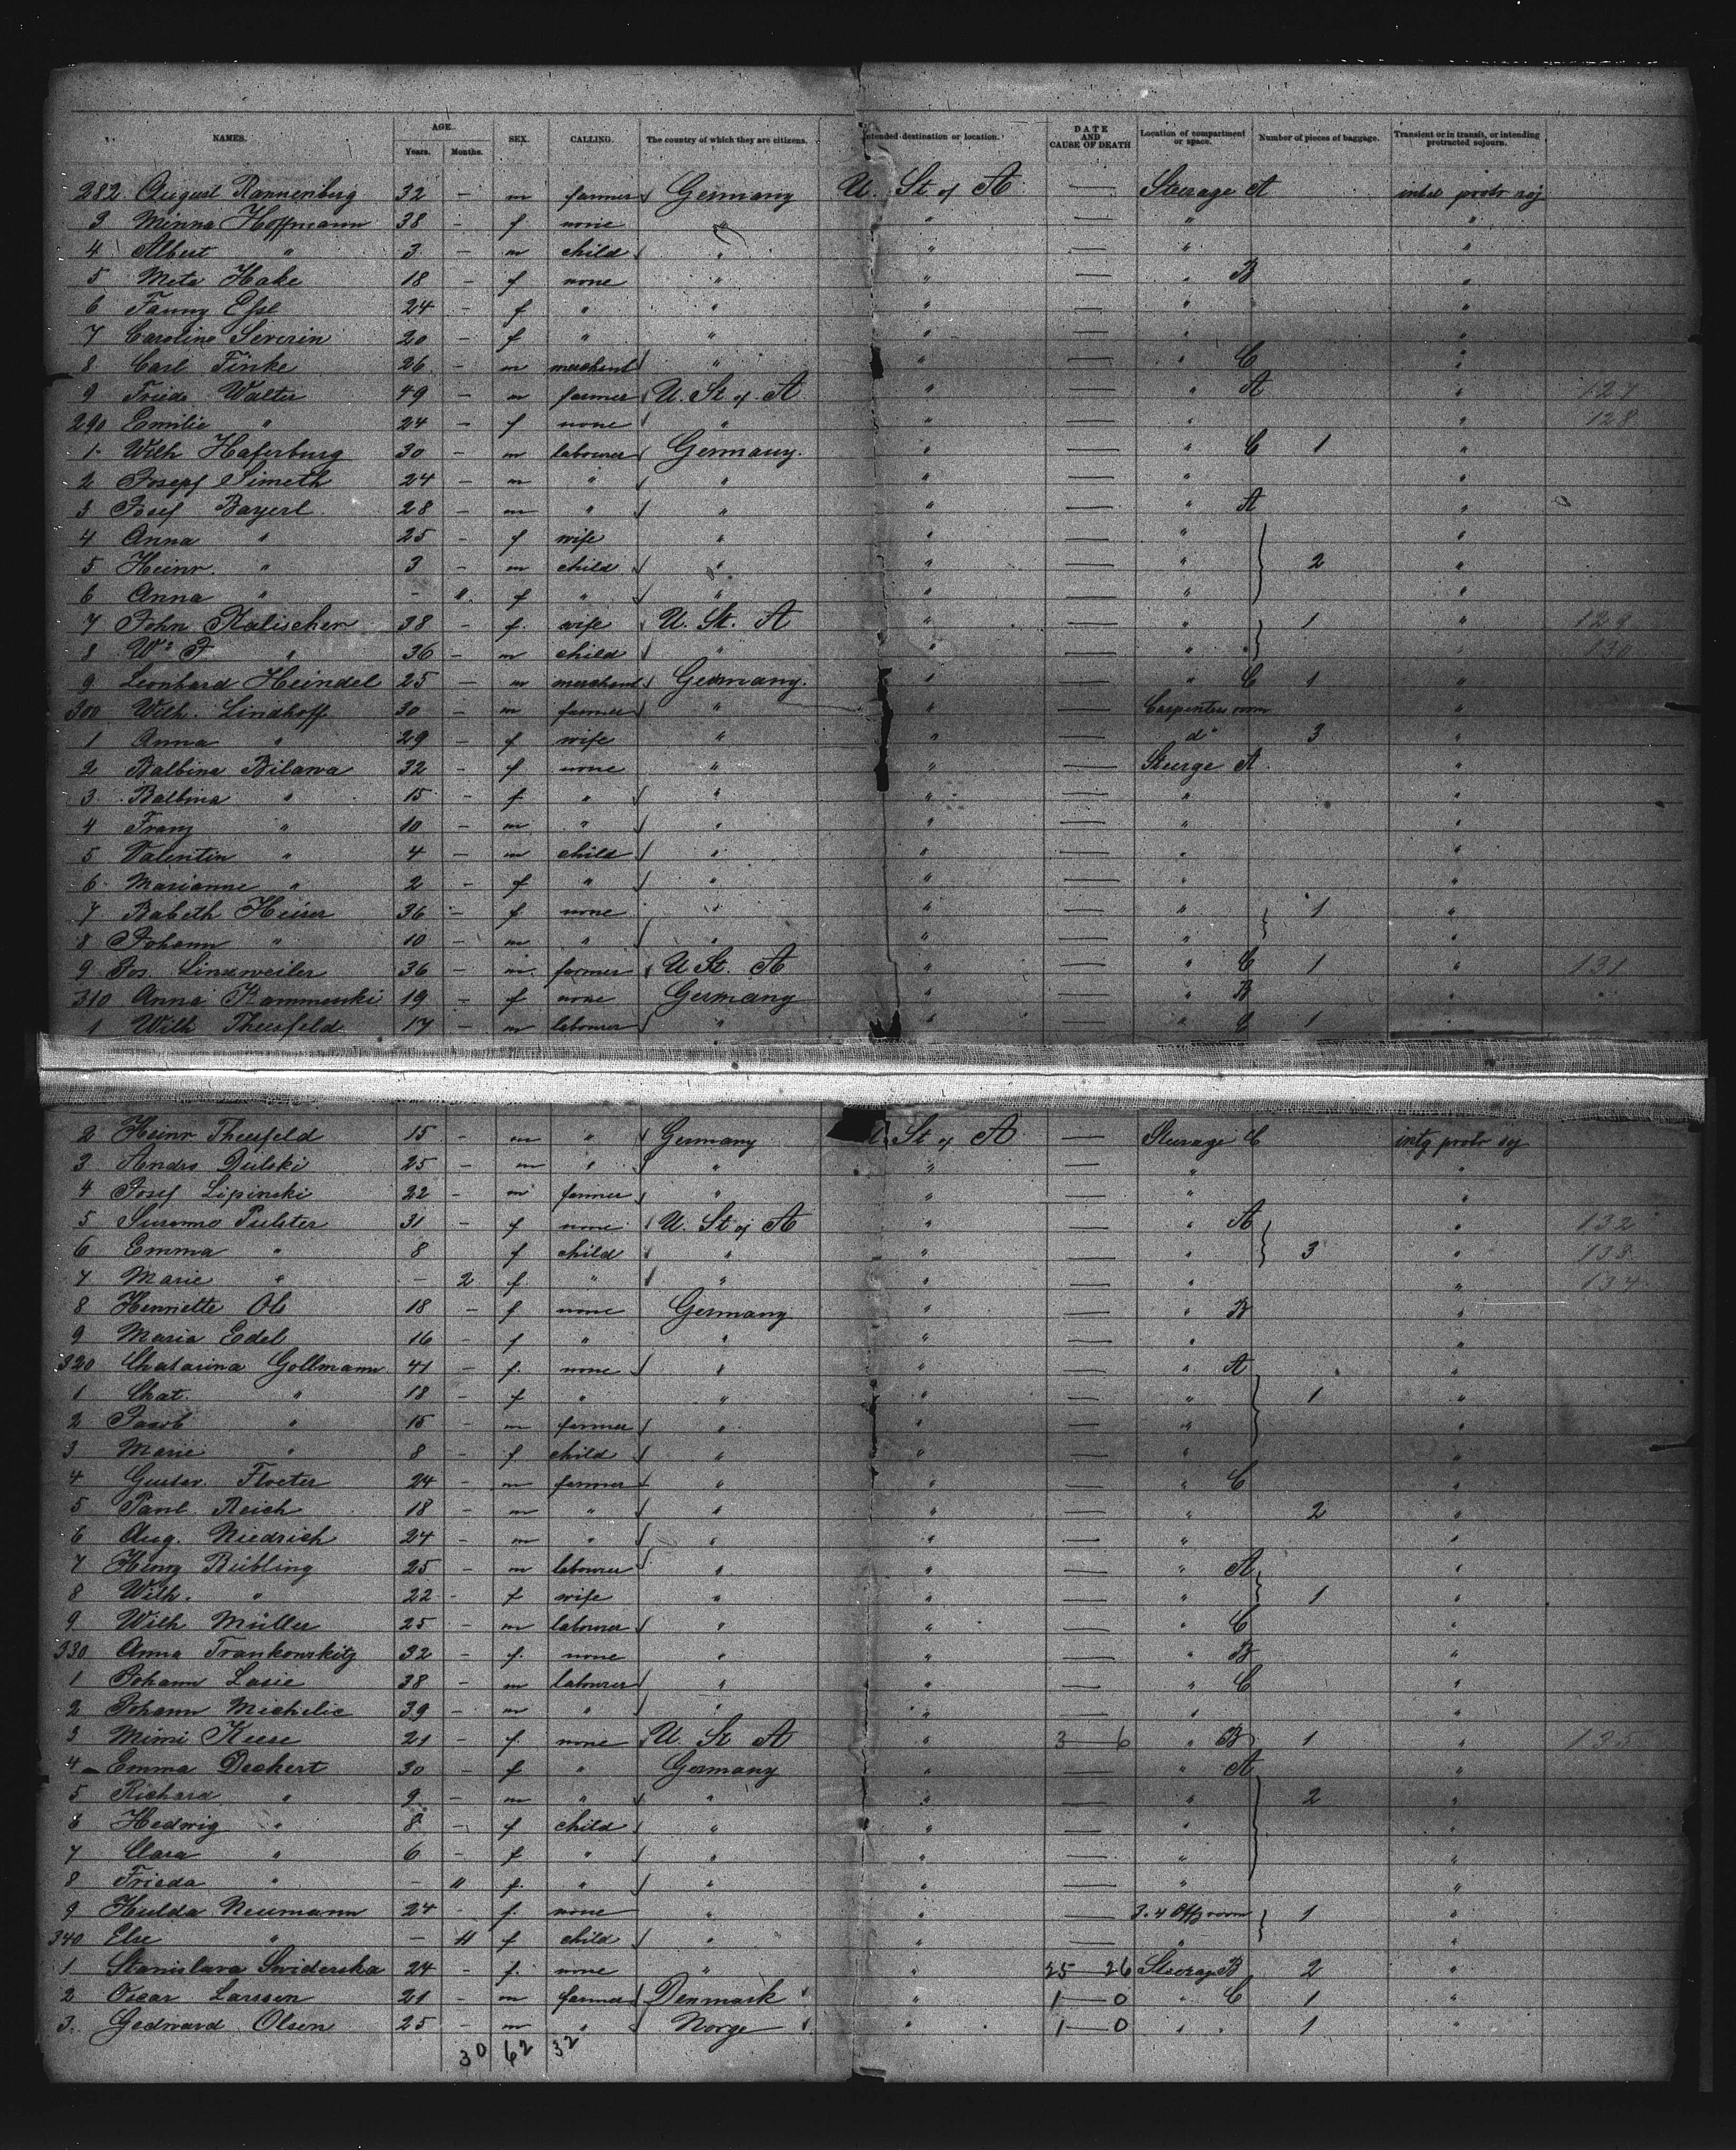 NAMES. AGE. Years. Months. SEX. CALLING. The country of which they are citizens. Intended destination or location. DATE AND CAUSE OF DEATH Location of compartment or space. Number of pieces of baggage. Transient or in transit, or intending protracted sojourn.
282 August Rannenberg 32 — m farmer Germany U. St of A — Steerage A
3 Minna Hoffmann 38 — f none " " — " "
4 Albert " 3 — m child " " — " "
5 Meta Hake 18 — f none " " — " B "
6 Fanny Essl 24 — f " " " — " "
7 Caroline Severin 20 — f " " " — " "
8 Carl Finke 26 — m merchant " " — " C "
9 Friedr Walter 49 — m farmer U. St of A " — " A " 127
290 Emilie " 24 — f none " " — " " 128
1 Wilh Haferburg 30 — m labourer Germany. " — " C 1 "
2 Josepf Simeth 24 — m " " " — " "
3 Josef Bayerl 28 — m " " " — " A "
4 Anna " 25 — f wife " " — " "
5 Heinr. " 3 — m child " " — " 2 "
6 Anna " — 11 f " " " — " "
7 John Kalischer 38 — f. wife U. St. A " — " 1 " 129
8 Wm F " 36 — m child " " — " " 130
9 Leonhard Heindel 25 — m merchant Germany. " — " C 1 "
300 Wilh. Lindhoff 30 — m farmer " " — Carpenters room "
1 Anna " 29 — f wife " " — do 3 "
2 Balbina Bilawa 32 — f none " " — Steerge A "
3 Balbina " 15 — f " " " — " "
4 Franz " 10 — m " " " — " "
5 Valentin " 4 — m child " " — " "
6 Marianne " 2 — f " " " — " "
7 Babeth Heiser 36 — f none " " — " 1 "
8 Johann " 10 — m " " " — " "
9 Jos. Linxweiler 36 — m farmer U St. A " — " C 1 " 131
310 Anna Kammenski 19 — f none Germany " — " B "
1 Wilh Theesfeld 17 — m labourer " " — " C 1 "
2 Heinr Theesfeld 15 — m " Germany U. St of A — Steerage C
3 Andrs Dulski 25 — m " " " — " "
4 Josef Lipinski 22 — m farmer " " — " "
5 Pulster 31 — f none U. St of A " — " A " 132
6 Emma " 8 f child " " — " 3 " 133
7 Marie " — 2 f " " " — " " 134
8 Henriette Ols 18 — f none Germany " — " B "
9 Maria Edel 16 — f " " " — " "
320 Chatarina Gollmann 41 — f. none " " — " A "
1 Chat. " 18 — f " " " — " 1 "
2 Jacob " 15 — m farmer " " — " "
3 Marie " 8 — f child " " — " "
4 Gustav. Floeter 24 — m farmer " " — " C "
5 Paul Reich 18 — m " " " — " 2 "
6 Aug. Niedrich 24 — m " " " — " "
7 Henry Bübling 25 — m labourer " " — " A "
8 Wilh. " 22 — f wife " " — " 1 "
9 Wilh Müller 25 — m labourer " " — " C "
330 Anna Trankowskitz 32 — f. none " " — " B "
1 Johann Lasic 38 — m labourer " " — " C "
2 Johann Michelic 39 — m " " " — " "
3 Mimi Keese 21 — f. none U. St A " 3—6 " B 1 " 135
4 Emma Dechert 30 — f " Germany " — " A "
5 Richard " 9 — m " " " — " 2 "
6 Hedwig " 8 — f child " " — " "
7 Clara " 6 — f " " " — " "
8 Frieda " — 11 f. " " " — " "
9 Hulda Neumann 24 — f. none " " — 3. 4 Offz room 1 "
340 Else " — 11 f child " " — " "
1 Stanislava Swiderska 24 — f. none " " 25—26 Steerage B 2 "
2 Oscar Larssen 21 — m farmer Denmark " 1—0 " C 1 "
3. Gedward Olsen 25 — m " Norge " 1—0 " " 1 "
30 62 32